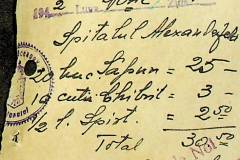 Spitalul Alexandr
20 buc Săpun = 25 -
10 cutii Chibrit = 3 -
1/2 l. Spirt = 2 50
Total 30 50